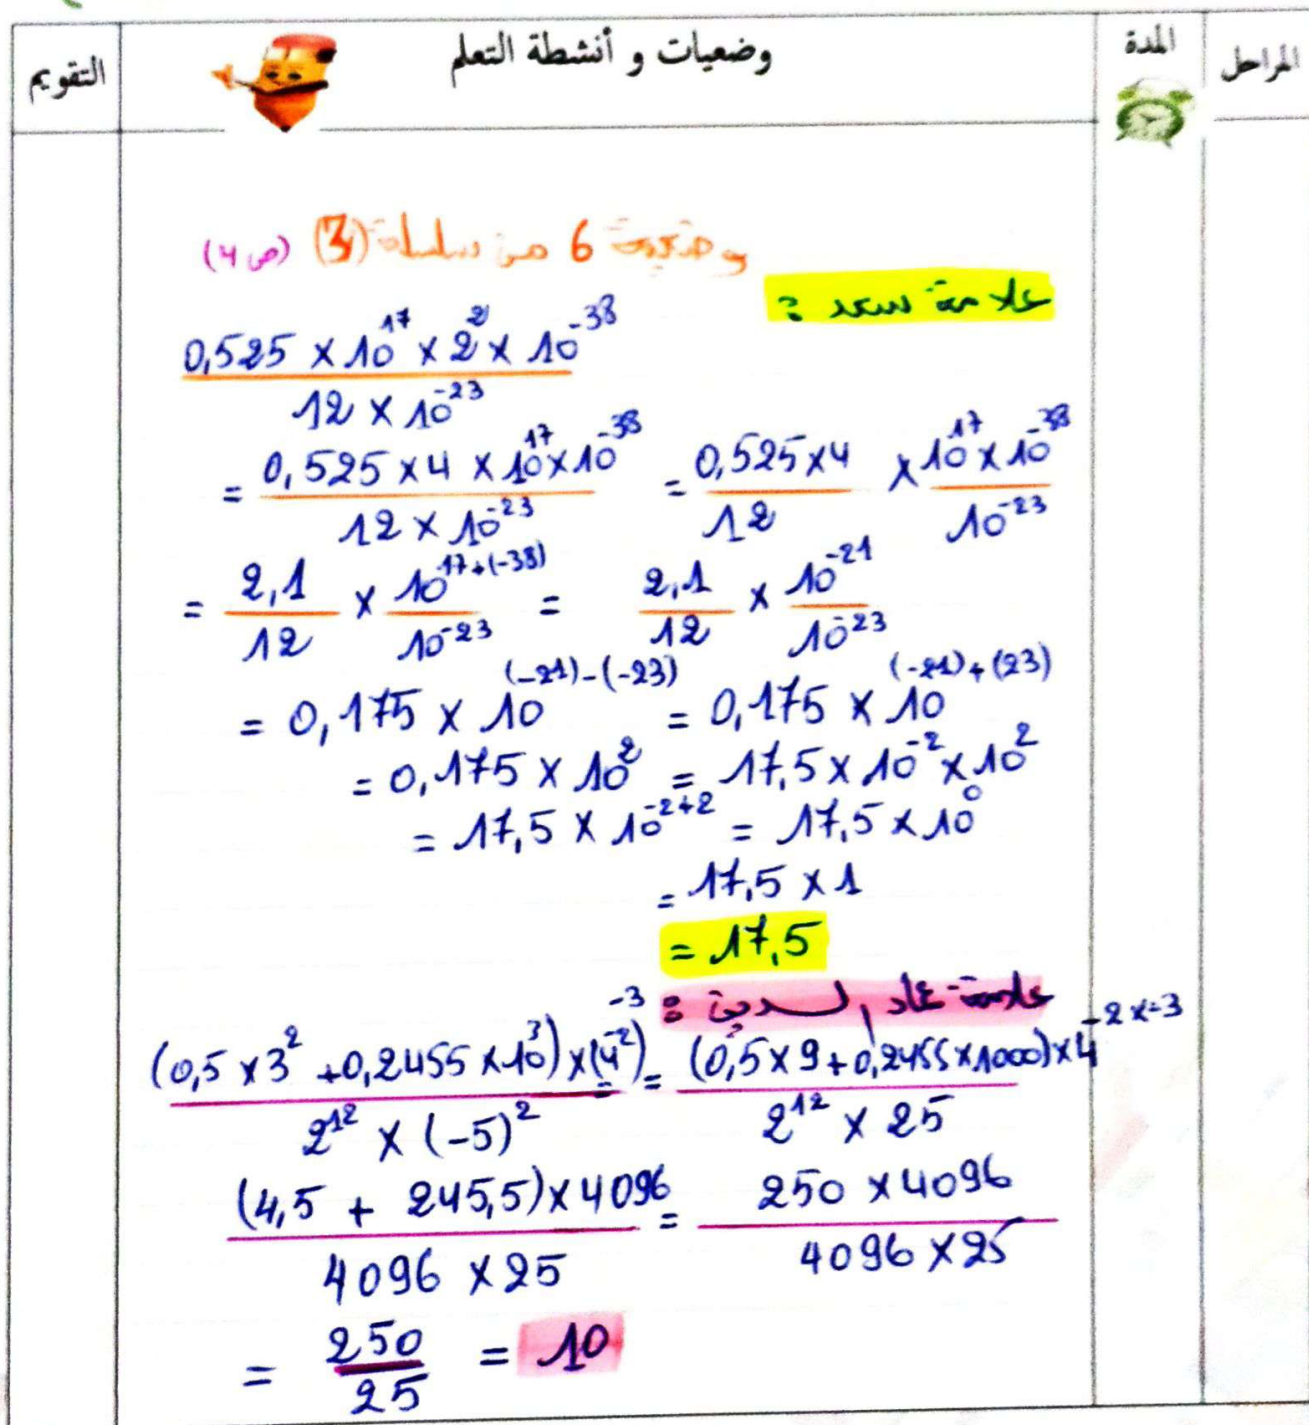 المراحل
المدة
وضعيات و أنشطة التعلم
التقويم
وضعية 6 من سلسلة (3) (ص 4)
علامة سعد :
0,525 × 10^17 × 2^2 × 10^-38 / 12 × 10^-23
= 0,525 × 4 × 10^17 × 10^-38 / 12 × 10^-23 = 0,525 × 4 / 12 × 10^17 × 10^-38 / 10^-23
= 2,1 / 12 × 10^17+(-38) / 10^-23 = 2,1 / 12 × 10^-21 / 10^-23
= 0,175 × 10^(-21)-(-23) = 0,175 × 10^(-21)+(23)
= 0,175 × 10^2 = 17,5 × 10^-2 × 10^2
= 17,5 × 10^-2+2 = 17,5 × 10^0
= 17,5 × 1
= 17,5
علامة عماد الدين :
(0,5 × 3^2 + 0,2455 × 10^3) × (4^-2)^-3 / 2^12 × (-5)^2 = (0,5 × 9 + 0,2455 × 1000) × 4^-2×-3 / 2^12 × 25
(4,5 + 245,5) × 4096 / 4096 × 25 = 250 × 4096 / 4096 × 25
= 250 / 25 = 10